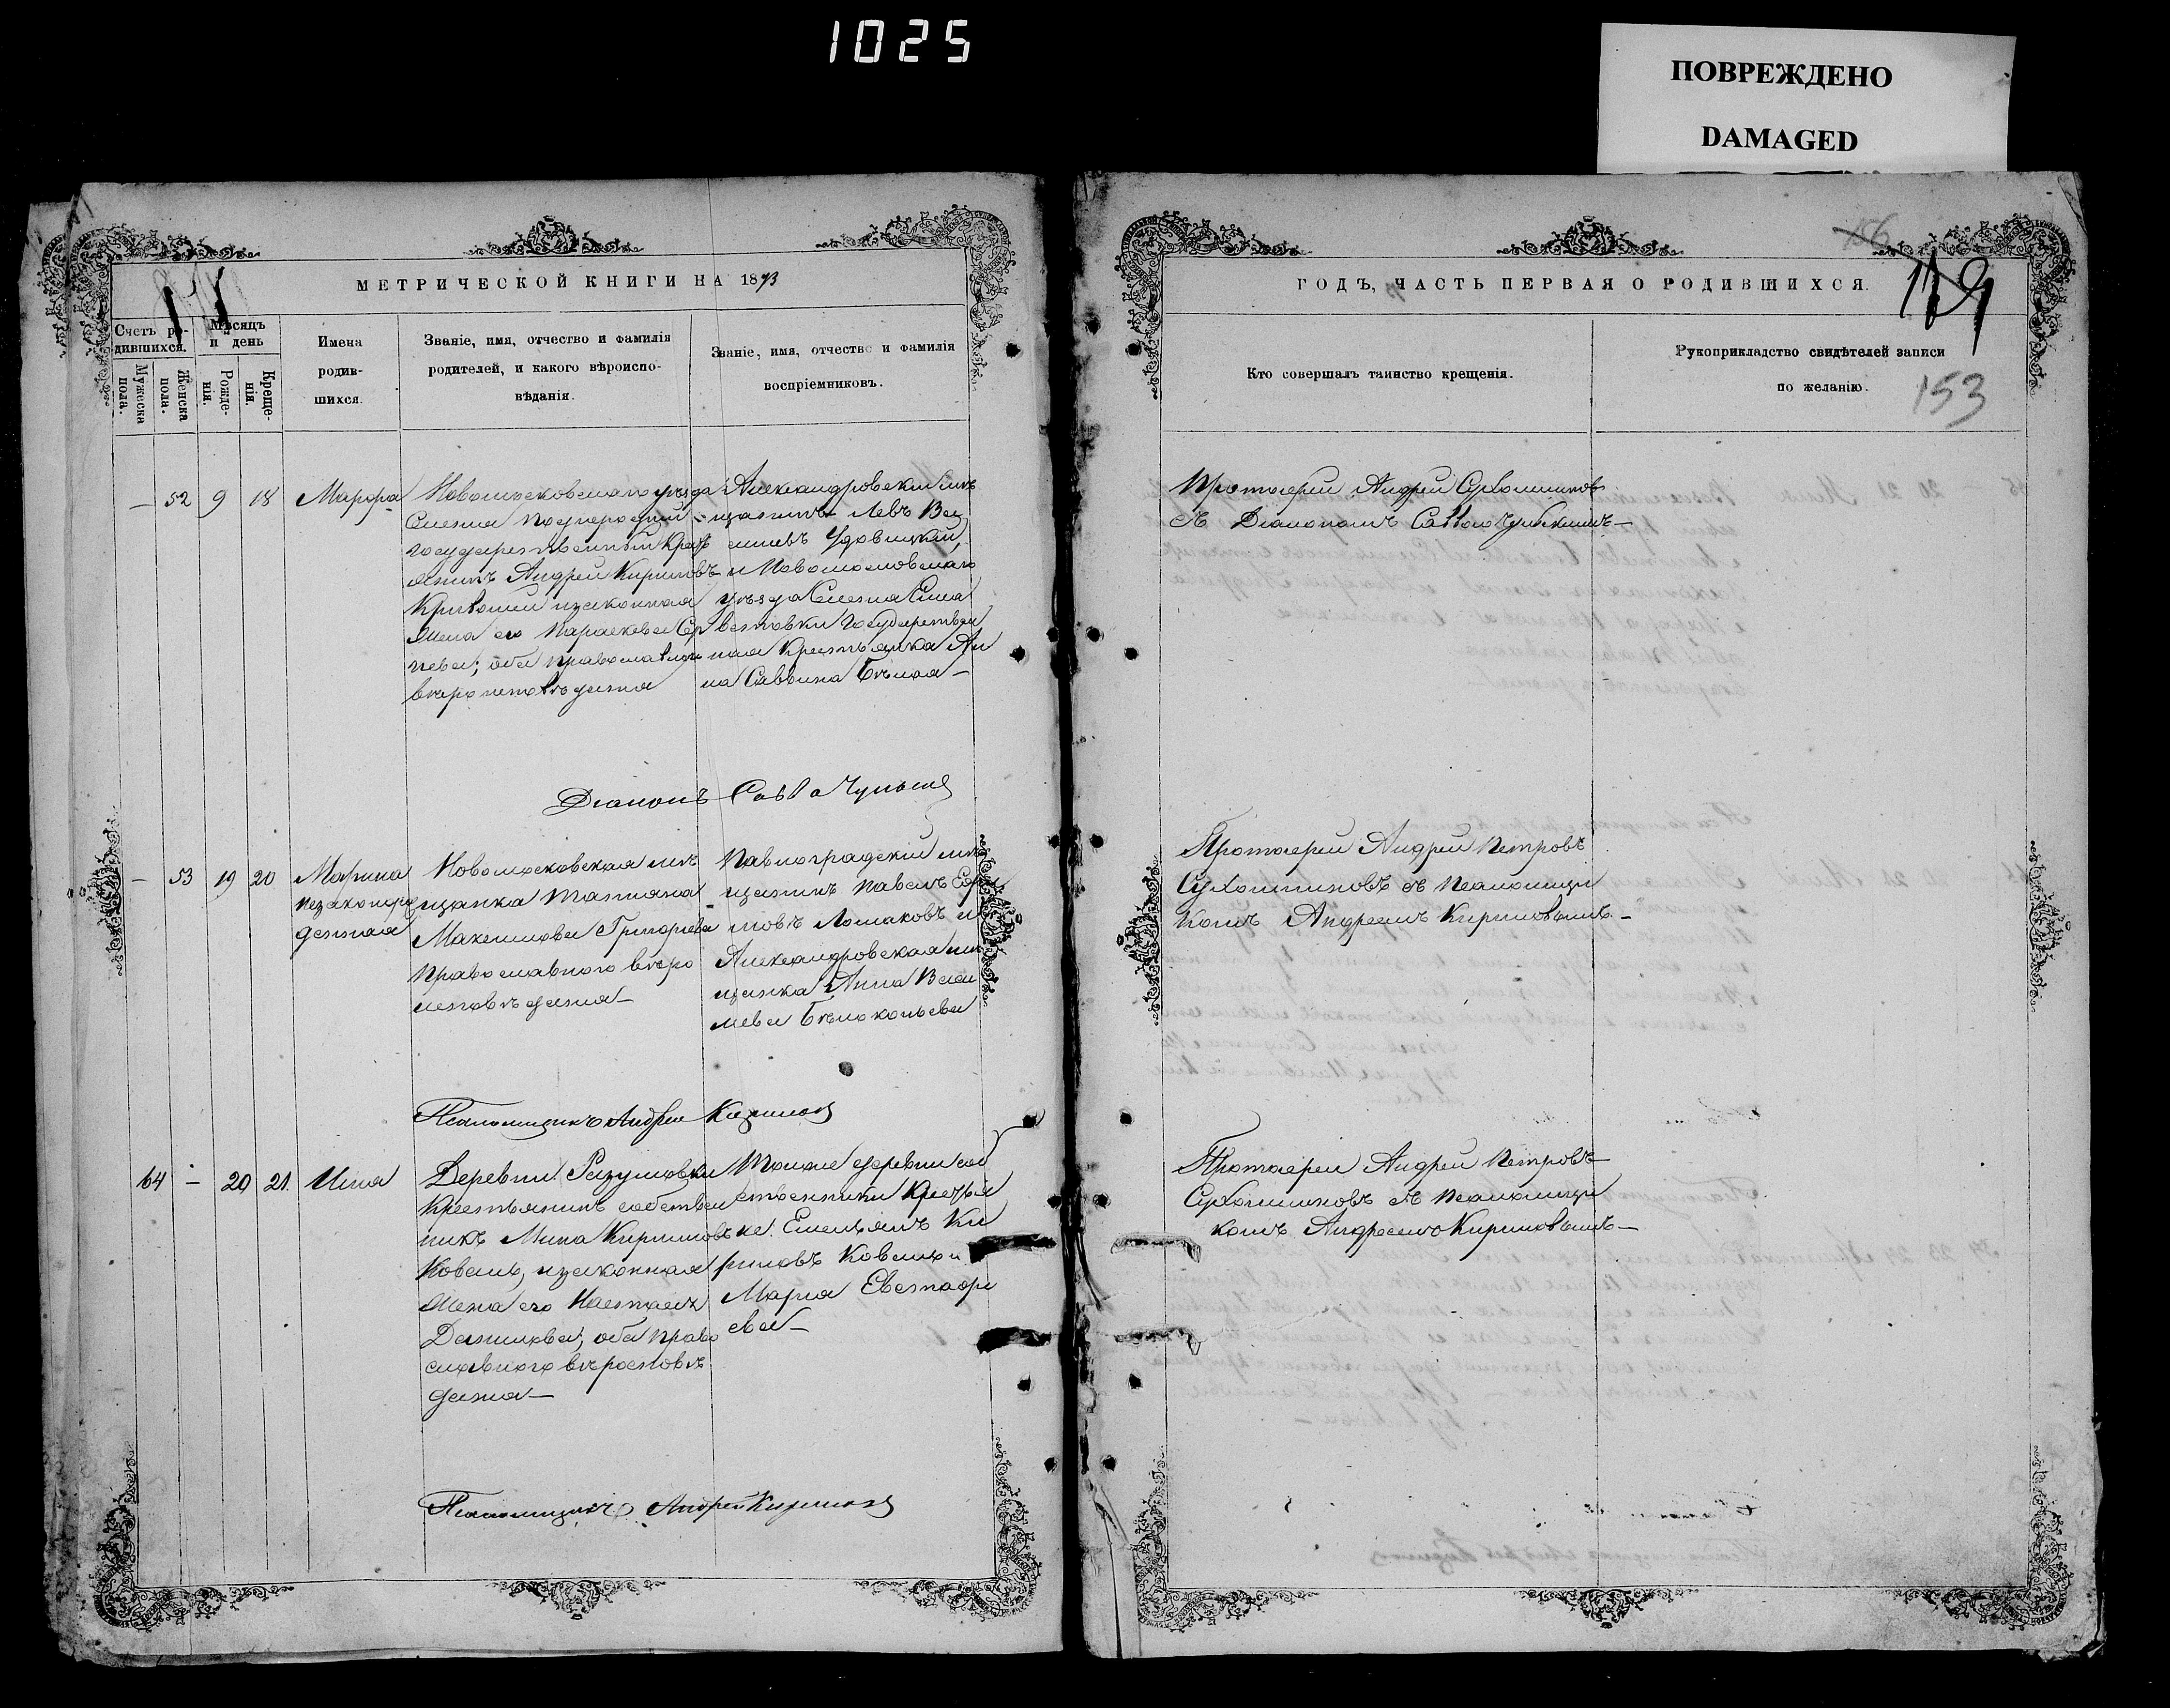 1025
ПОВРЕЖДЕНО
DAMAGED
МЕТРИЧЕСКОЙ КНИГИ НА 1873
Счетъ ро-
дившихся.
Мужеска
пола.
Женска
пола.
Мѣсяцъ
и день
Рожде-
нія.
Креще-
нія.
Имена
родив-
шихся.
Званіе, имя, отчество и фамилія
родителей, и какого вѣроиспо-
вѣданія.
Званіе, имя, отчество и фамилія
воспріемниковъ.
— 52 9 18 Марфа
Новомосковскаго уѣзда
Селенія
государственный Крест
янинъ Андрей Кириловъ
законная
жена его Параскева Сер
геева; оба православнаго
вѣроисповѣданія
Александровскій мѣ
щанинъ Левъ Ва
сильевъ Удовицкій,
и Новомосковскаго
уѣзда Селенія
Государствен
ная Крестьянка Ан
на Саввина Бѣлая —
Діаконъ Савва
— 53 19 20 Марина
незаконорож
денная
Новомосковская мѣ
щанка Татіана
Максимова Григорьева
Православнаго вѣро
исповѣданія —
Павлоградскій мѣ
щанинъ Павелъ
Ломаковъ и
Александровская мѣ
щанка Анна Васи
льева Бѣлокопьева
Псаломщикъ Андрей Кириловъ
64 — 20 21. Иона
Деревни Разумовки
Крестьянинъ собствен
никъ Мина Кириловъ
Коваль, законная
жена его Настасія
Данилова; оба право
славнаго вѣроисповѣ
данія —
Тойже деревни соб
ственники Крестья
не. Емельянъ Ки
риловъ Коваль и
Марія Евстафі
ева —
Псаломщикъ Андрей Кириловъ
ГОДЪ, ЧАСТЬ ПЕРВАЯ О РОДИВШИХСЯ.
153
Кто совершалъ таинство крещенія.
Рукоприкладство свидѣтелей записи
по желанію.
Протоіерей Андрей Сухомлиновъ
съ Діакономъ Саввою
Протоіерей Андрей Петровъ
Сухомлиновъ съ Псаломщи
комъ Андреемъ Кириловымъ —
Протоіерей Андрей Петровъ
Сухомлиновъ съ Псаломщи
комъ Андреемъ Кириловымъ —